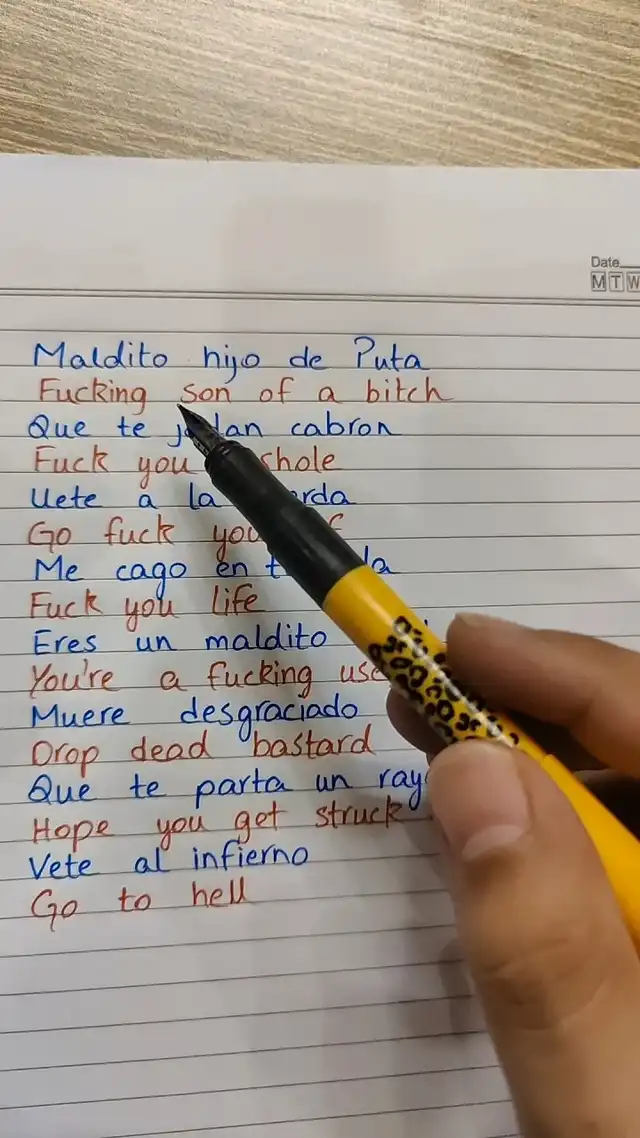 Date
M T W
Maldito hijo de Puta
Fucking son of a bitch
Que te cabron
Fuck you
Uete a la
Go fuck
Me cago en
Fuck you life
Eres un maldito
You're a fucking
Muere desgraciado
Drop dead bastard
Que te parta un
Hope you get struck
Vete al infierno
Go to hell